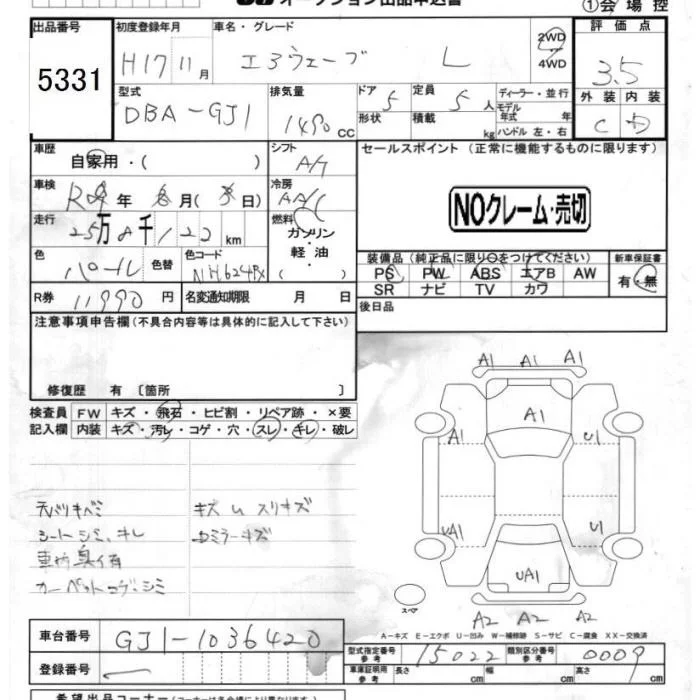 オークション出品申込書
①会場控
出品番号 5331
初度登録年月 H17 11月
車名・グレード エアウェーブ L
2WD 4WD
評価点 3.5
外装 C 内装 D
型式 DBA-GJ1
排気量 1490 CC
ドア 5 形状
定員 5人 積載 kg
ディーラー・並行
モデル年式 年
ハンドル 左・右
車歴 自家用・( )
シフト A/T
セールスポイント (正常に機能するものに限ります)
車検 R 年 月( 日)
冷房 AAC
NOクレーム・売切
走行 25万8千122km
燃料 ガソリン・軽油・( )
色 パール 色替
色コード NH624PX
装備品(純正品に限り○をつけてください)
PS PW ABS エアB AW
SR ナビ TV カワ
新車保証書 有・無
R券 11990円
名変通知期限 月 日
後日品
注意事項申告欄(不具合内容等は具体的に記入して下さい)
修復歴 有 〔箇所 〕
検査員 FW キズ・飛石・ヒビ割・リペア跡・×要
記入欄 内装 キズ・汚レ・コゲ・穴・スレ・キレ・破レ
A1 A1 A1
A1
A1 U1
UA1 U1
UA1
A2 A2 A2
天バリキバミ キズ U スリキズ
シートシミ、キレ ミラーキズ
車内臭イ有
カーペットコゲ・シミ
スペア
A-キズ E-エクボ U-凹み W-補修跡 S-サビ C-腐食 XX-交換済
車台番号 GJ1-1036420
登録番号
型式指定番号 参考 15022
類別区分番号 参考 0009
車庫証明用 参考 長さ 幅 高さ
希望出品コーナー